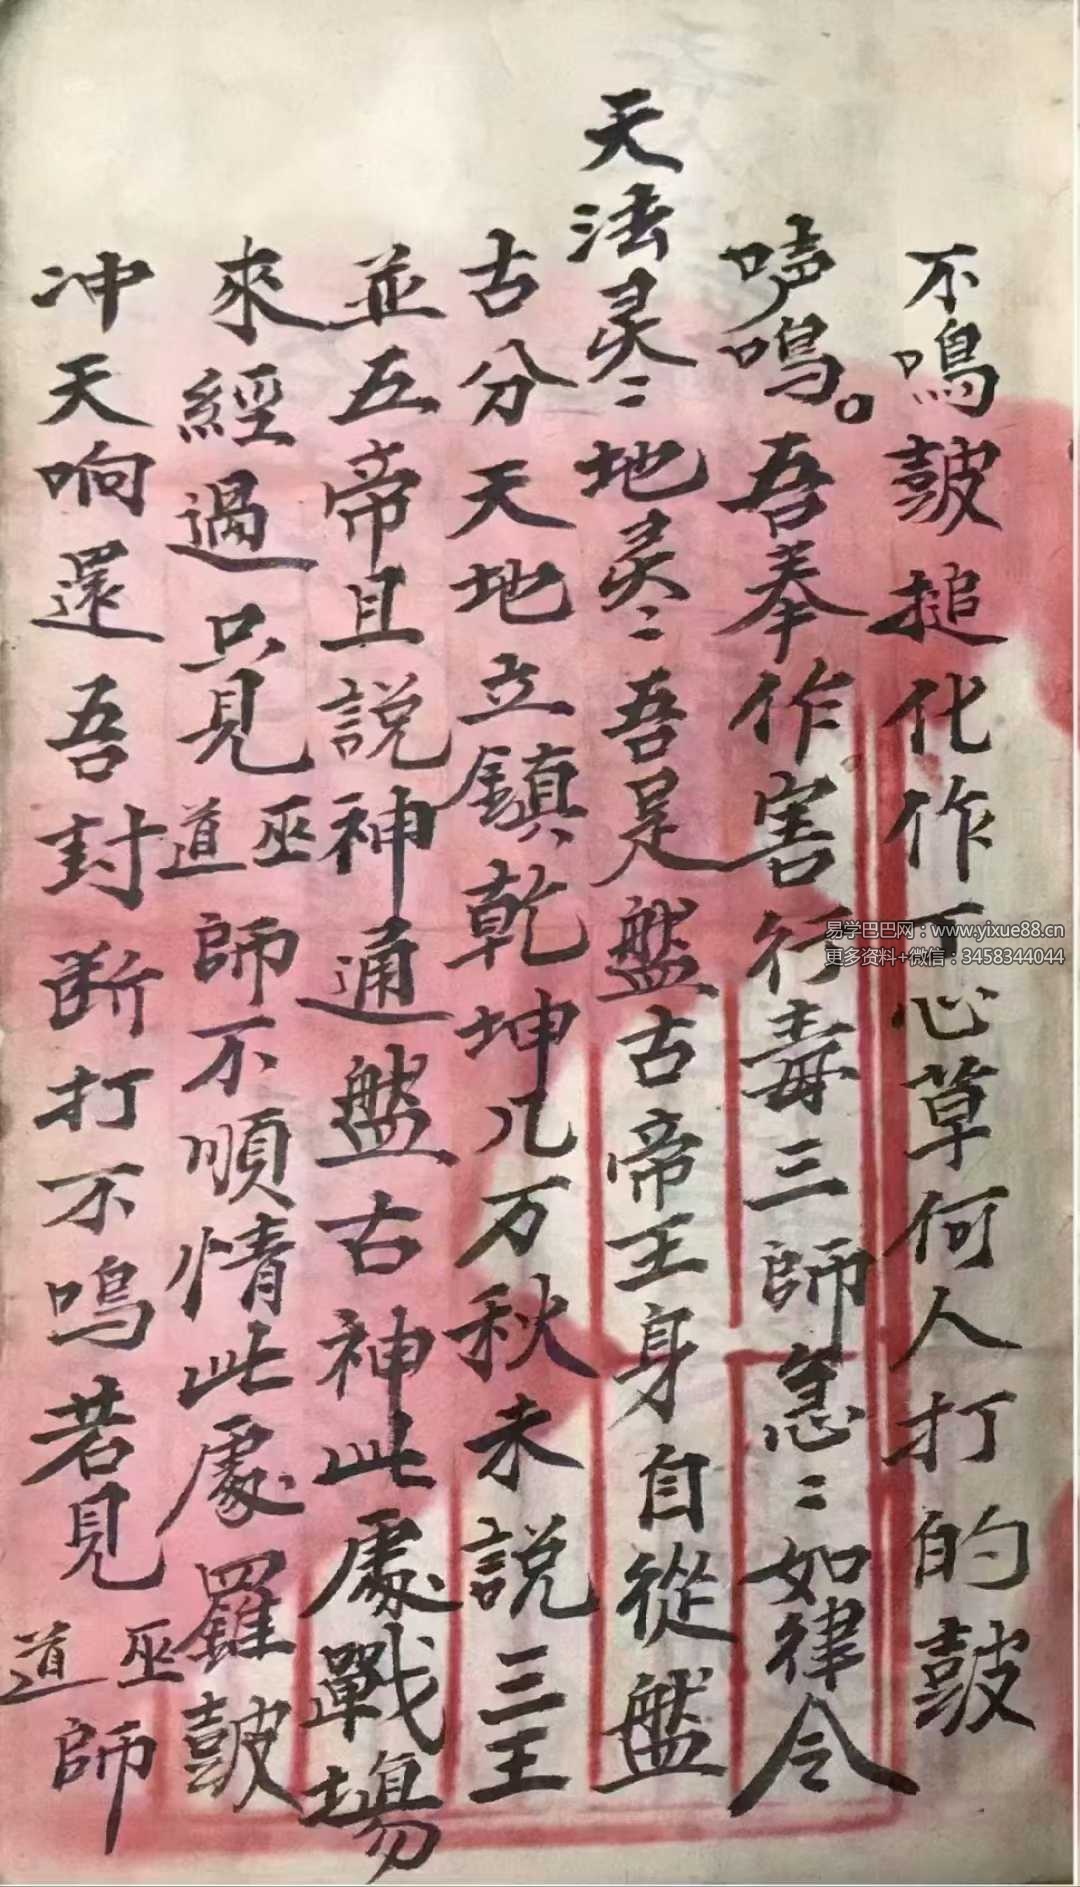 不鳴皷搥化作下心草何人打的皷
声鳴。吾奉作害行毒三師急〻如律令
天法灵〻地灵〻吾是盤古帝王身自從盤
古分天地立鎮乾坤几万秋未説三王
並五帝且説神通盤古神此處戰場
來經過只見道巫師不順情此處羅皷
冲天响還吾封断打不鳴若見道巫師
易学巴巴网：www.yixue88.cn
更多资料+微信：3458344044